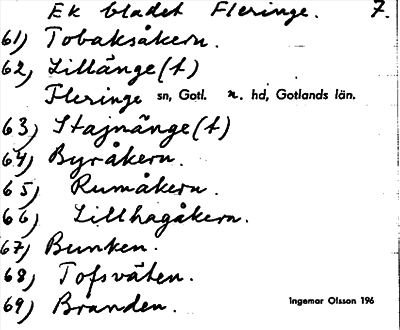 Ek bladet Fleringe. 7.
61) Tobaksåkern.
62) Lillänge(t)
Fleringe sn, Gotl. n. hd, Gotlands län.
63) Stajnänge(t)
64) Byråkern.
65) Rumåkern.
66) Lillhagåkern.
67) Bunken.
68) Tofsväten.
69) Branden.
Ingemar Olsson 196